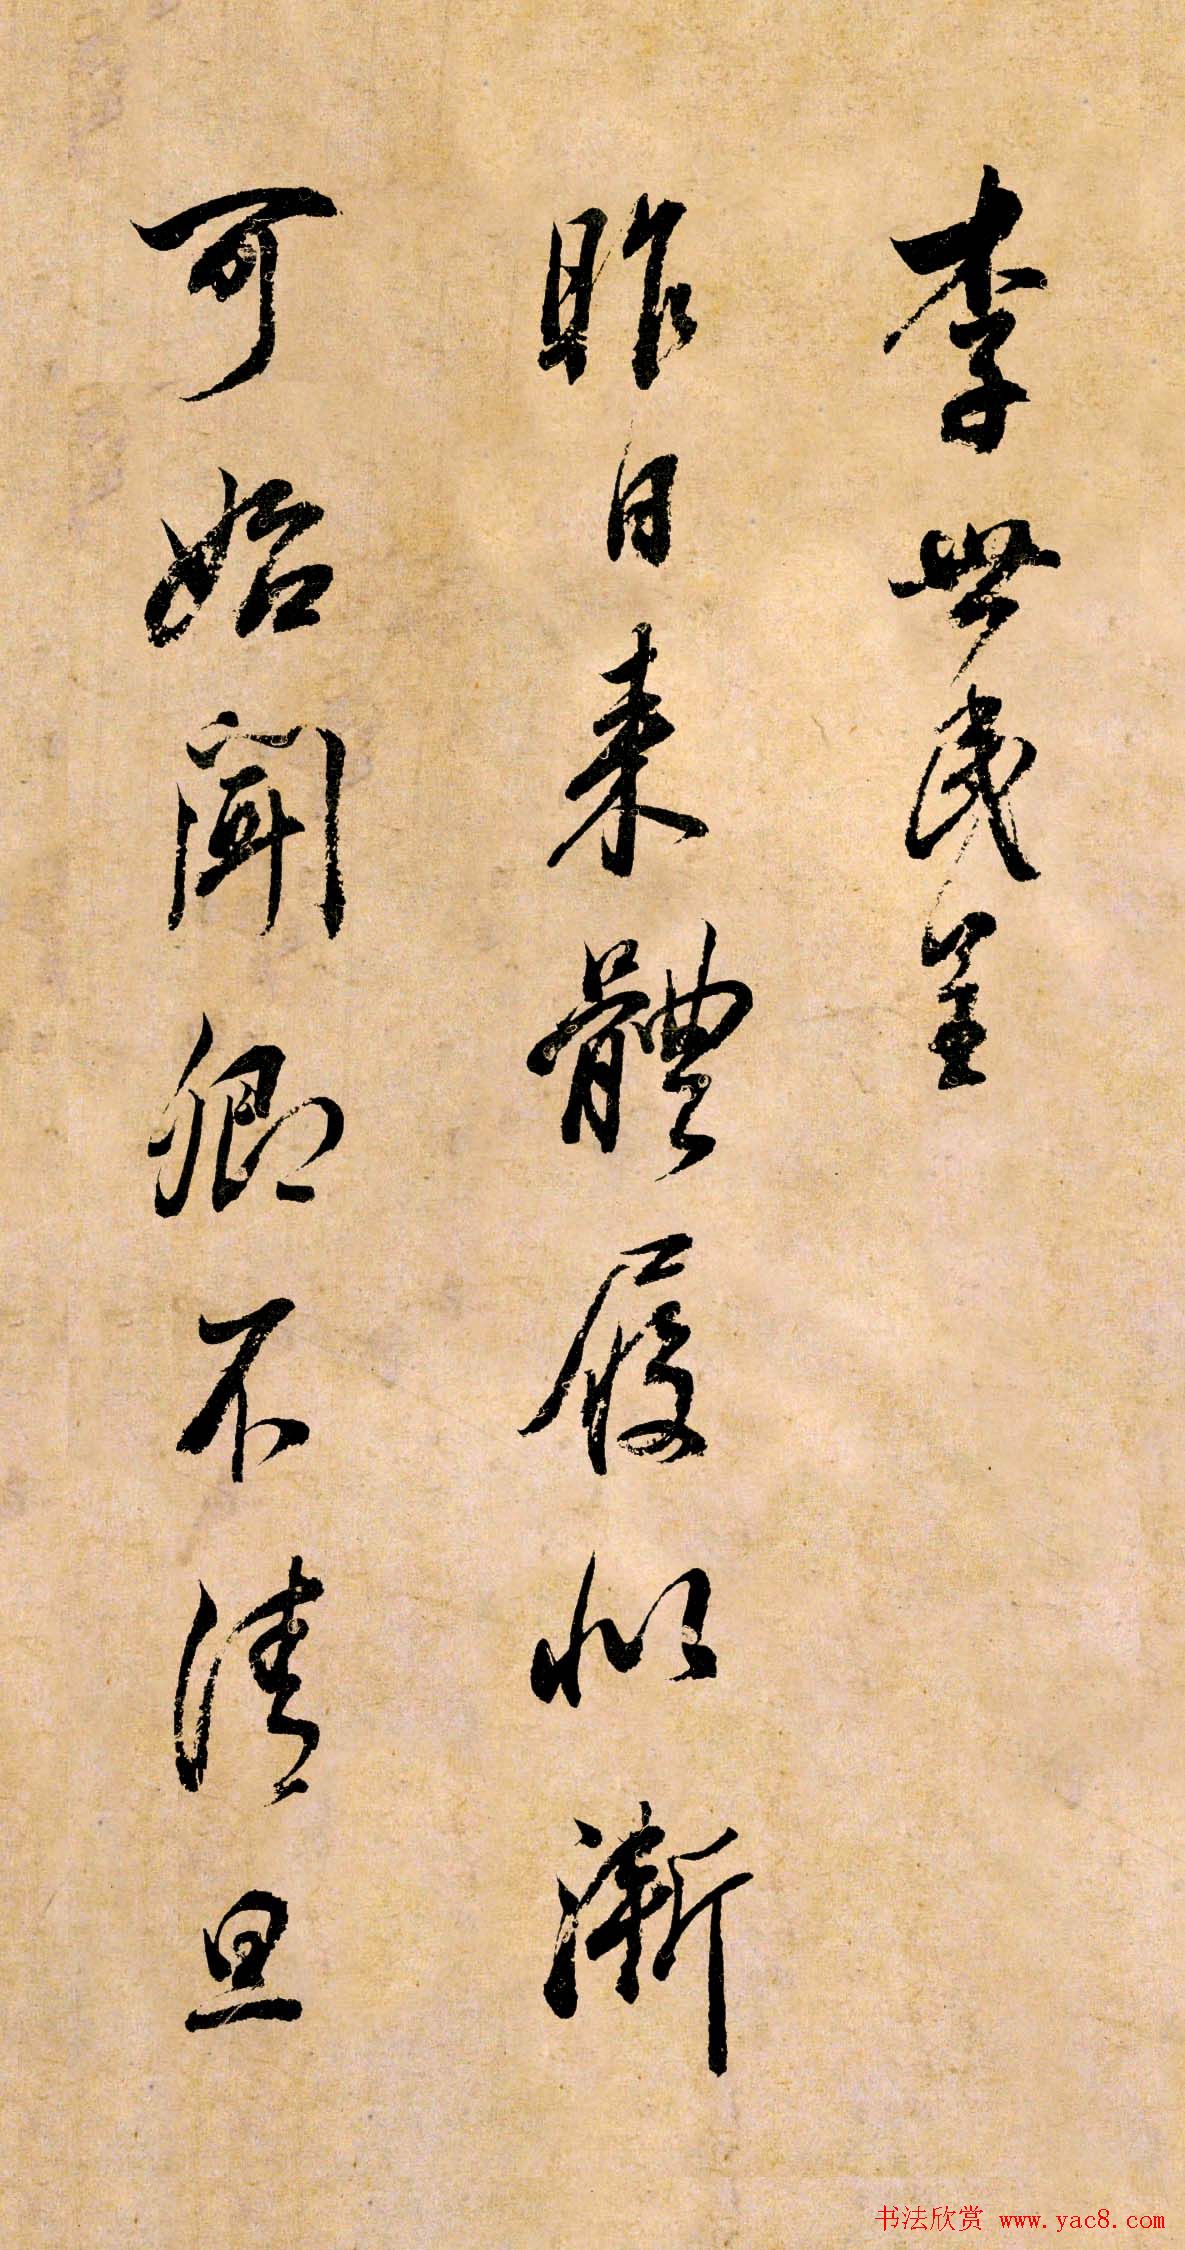 李世民呈
昨日来體履似漸
可始聞卿不清旦
书法欣赏 www.yac8.com